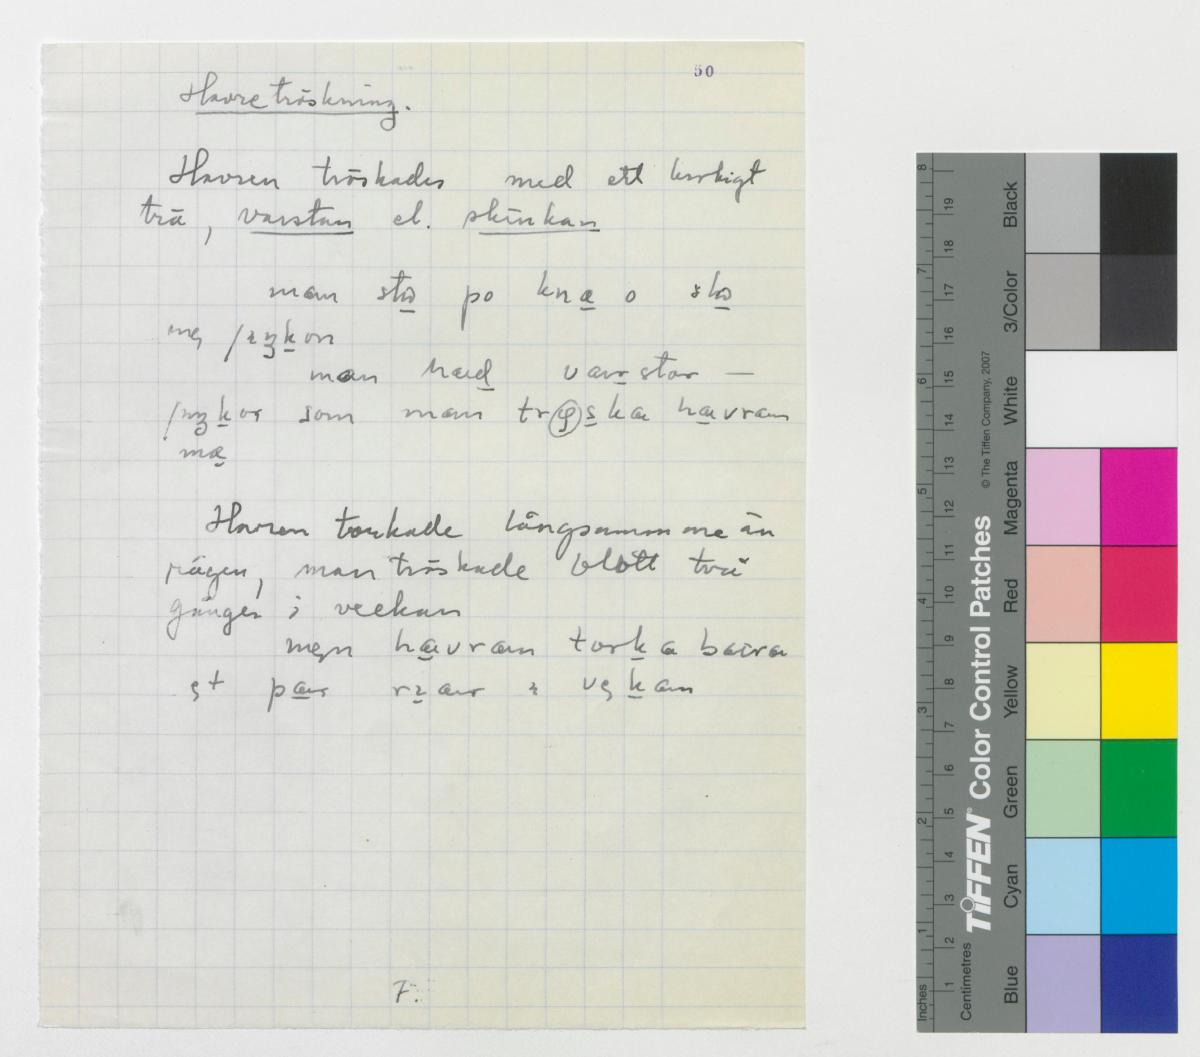 50
Havretröskning.
Havren tröskades med ett krokigt
trä, varstan el. skinkan
man stω po knæ o slω
mę
man had varstar —
som man trøska havran
mæ
Havren torkade långsammare än
rågen, man tröskade blott två
gånger i veckan
męn havran torka baira
ęt par i vękan
F.
Inches
1 2 3 4 5 6 7 8
Centimetres
1 2 3 4 5 6 7 8 9 10 11 12 13 14 15 16 17 18 19
TIFFEN® Color Control Patches
© The Tiffen Company, 2007
Blue Cyan Green Yellow Red Magenta White 3/Color Black